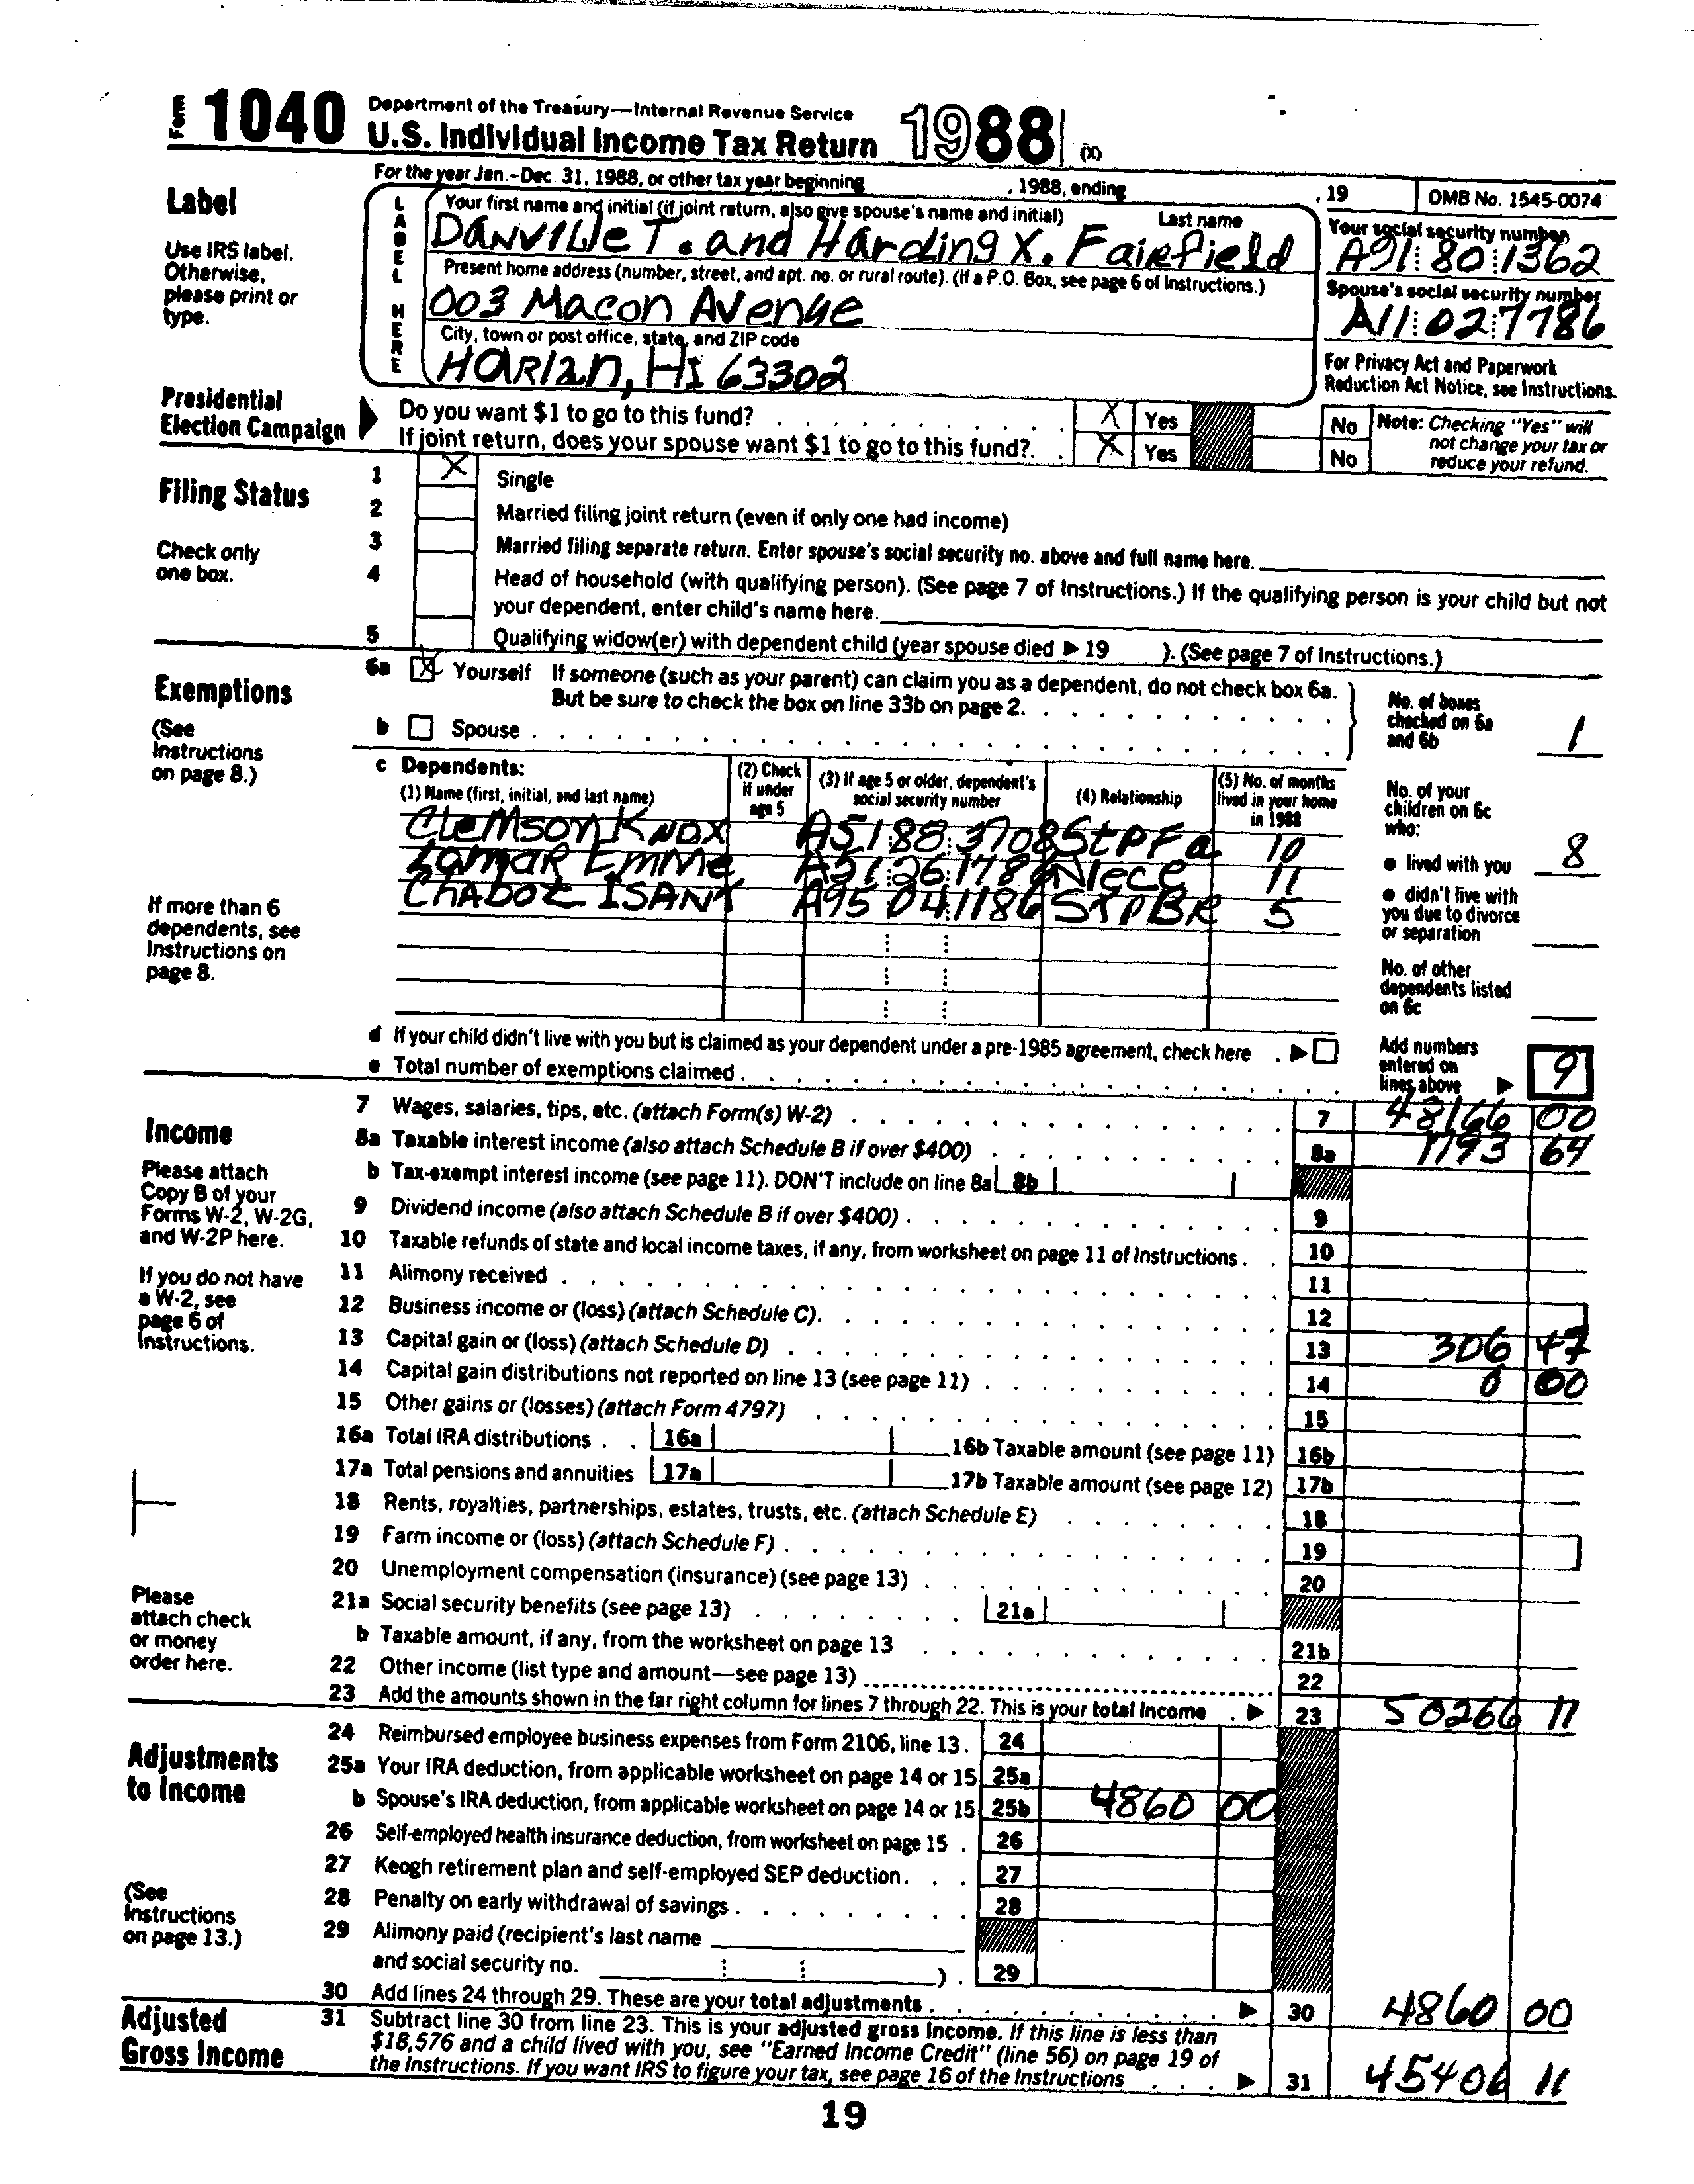 Form 1040 Department of the Treasury—Internal Revenue Service
U.S. Individual Income Tax Return 1988 (X)
For the year Jan.-Dec. 31, 1988, or other tax year beginning , 1988, ending , 19 OMB No. 1545-0074
Label
Use IRS label. Otherwise, please print or type.
LABEL HERE
Your first name and initial (if joint return, also give spouse's name and initial) Last name
DANVILLE T. and Harding X. Fairfield
Your social security number
A91 80 1362
Present home address (number, street, and apt. no. or rural route). (If a P.O. Box, see page 6 of Instructions.)
003 Macon Avenue
Spouse's social security number
A11 02 7786
City, town or post office, state, and ZIP code
HARlan, HI 63302
For Privacy Act and Paperwork Reduction Act Notice, see Instructions.
Presidential Election Campaign
Do you want $1 to go to this fund? X Yes No
If joint return, does your spouse want $1 to go to this fund? X Yes No
Note: Checking "Yes" will not change your tax or reduce your refund.
Filing Status
Check only one box.
1 X Single
2 Married filing joint return (even if only one had income)
3 Married filing separate return. Enter spouse's social security no. above and full name here.
4 Head of household (with qualifying person). (See page 7 of Instructions.) If the qualifying person is your child but not
your dependent, enter child's name here.
5 Qualifying widow(er) with dependent child (year spouse died ▶ 19 ). (See page 7 of Instructions.)
Exemptions
(See Instructions on page 8.)
6a X Yourself If someone (such as your parent) can claim you as a dependent, do not check box 6a.
But be sure to check the box on line 33b on page 2.
b Spouse
No. of boxes checked on 6a and 6b 1
c Dependents:
(1) Name (first, initial, and last name) (2) Check if under age 5 (3) If age 5 or older, dependent's social security number (4) Relationship (5) No. of months lived in your home in 1988
Clemson Knox A51 88 3708 StPFa 10
Lamar Emme A31 26 1786 Niece 11
Chabot ISANT A95 04 1186 STPBR 5
If more than 6 dependents, see Instructions on page 8.
No. of your children on 6c who:
● lived with you 8
● didn't live with you due to divorce or separation
No. of other dependents listed on 6c
d If your child didn't live with you but is claimed as your dependent under a pre-1985 agreement, check here ▶
e Total number of exemptions claimed
Add numbers entered on lines above ▶ 9
Income
Please attach Copy B of your Forms W-2, W-2G, and W-2P here.
If you do not have a W-2, see page 6 of Instructions.
Please attach check or money order here.
7 Wages, salaries, tips, etc. (attach Form(s) W-2) 7 48166 00
8a Taxable interest income (also attach Schedule B if over $400) 8a 1793 64
b Tax-exempt interest income (see page 11). DON'T include on line 8a 8b
9 Dividend income (also attach Schedule B if over $400) 9
10 Taxable refunds of state and local income taxes, if any, from worksheet on page 11 of Instructions 10
11 Alimony received 11
12 Business income or (loss) (attach Schedule C) 12
13 Capital gain or (loss) (attach Schedule D) 13 306 47
14 Capital gain distributions not reported on line 13 (see page 11) 14 0 00
15 Other gains or (losses) (attach Form 4797) 15
16a Total IRA distributions 16a 16b Taxable amount (see page 11) 16b
17a Total pensions and annuities 17a 17b Taxable amount (see page 12) 17b
18 Rents, royalties, partnerships, estates, trusts, etc. (attach Schedule E) 18
19 Farm income or (loss) (attach Schedule F) 19
20 Unemployment compensation (insurance) (see page 13) 20
21a Social security benefits (see page 13) 21a
b Taxable amount, if any, from the worksheet on page 13 21b
22 Other income (list type and amount—see page 13) 22
23 Add the amounts shown in the far right column for lines 7 through 22. This is your total income ▶ 23 50266 11
Adjustments to Income
(See Instructions on page 13.)
24 Reimbursed employee business expenses from Form 2106, line 13. 24
25a Your IRA deduction, from applicable worksheet on page 14 or 15 25a
b Spouse's IRA deduction, from applicable worksheet on page 14 or 15 25b 4860 00
26 Self-employed health insurance deduction, from worksheet on page 15 26
27 Keogh retirement plan and self-employed SEP deduction 27
28 Penalty on early withdrawal of savings 28
29 Alimony paid (recipient's last name
and social security no. ) 29
30 Add lines 24 through 29. These are your total adjustments ▶ 30 4860 00
Adjusted Gross Income
31 Subtract line 30 from line 23. This is your adjusted gross income. If this line is less than
$18,576 and a child lived with you, see "Earned Income Credit" (line 56) on page 19 of
the Instructions. If you want IRS to figure your tax, see page 16 of the Instructions ▶ 31 45406 11
19